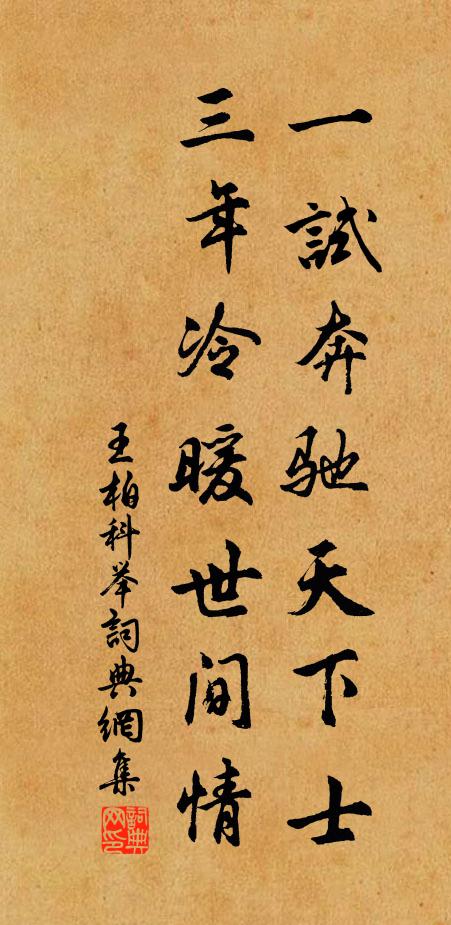 一試奔馳天下士
三年冷暖世间情
王柏科举詞典網集
詞典网印